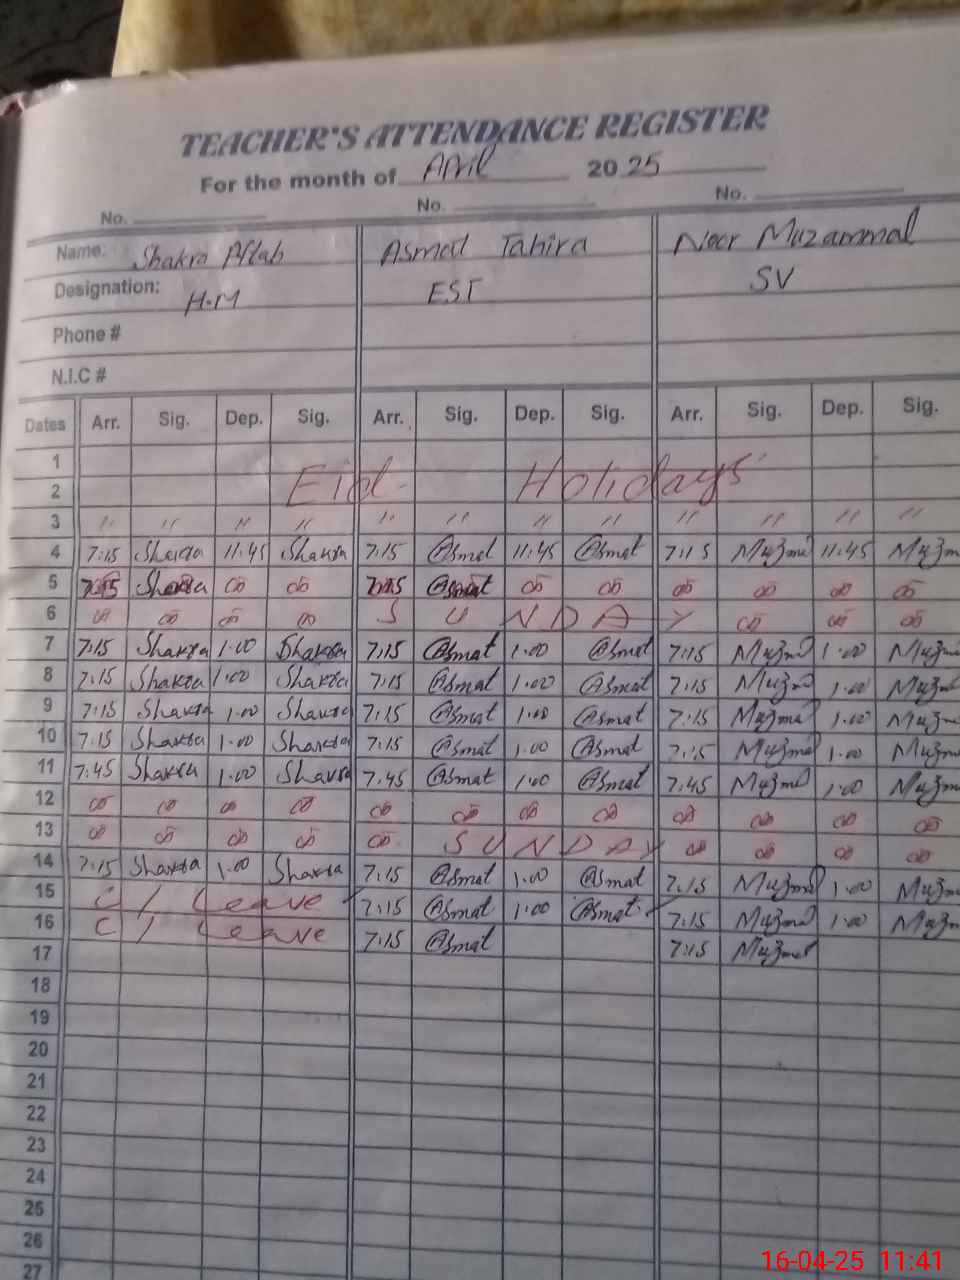 TEACHER'S ATTENDANCE REGISTER
For the month of April 2025
No. No. No.
Name: Shakra Aftab Asmat Tahira Noor Muzammal
Designation: H.M EST SV
Phone #
N.I.C #
Dates Arr. Sig. Dep. Sig. Arr. Sig. Dep. Sig. Arr. Sig. Dep. Sig.
1
2 Eid Holidays
3 " " " " " " " " " " " "
4 7:15 Shakra 11:45 Shakra 7:15 Asmat 11:45 Asmat 7:15 11:45
5 7:15 Shakra 7:15 Asmat
6 SUNDAY
7 7:15 Shakra 1.00 Shakra 7:15 Asmat 1.00 Asmat 7:15 1.00
8 7:15 Shakra 1.00 Shakra 7:15 Asmat 1.00 Asmat 7:15 1.00
9 7:15 Shakra 1.00 Shakra 7:15 Asmat 1.00 Asmat 7:15 1.00
10 7:15 Shakra 1.00 Shakra 7:15 Asmat 1.00 Asmat 7:15 1.00
11 7:45 Shakra 1.00 Shakra 7:45 Asmat 1.00 Asmat 7:45 1.00
12
13 SUNDAY
14 7:15 Shakra 1.00 Shakra 7:15 Asmat 1.00 Asmat 7:15 1.00
15 C/Leave 7:15 Asmat 1.00 Asmat 7:15 1.00
16 C/Leave 7:15 Asmat 7:15
17
18
19
20
21
22
23
24
25
26
27
16-04-25 11:41